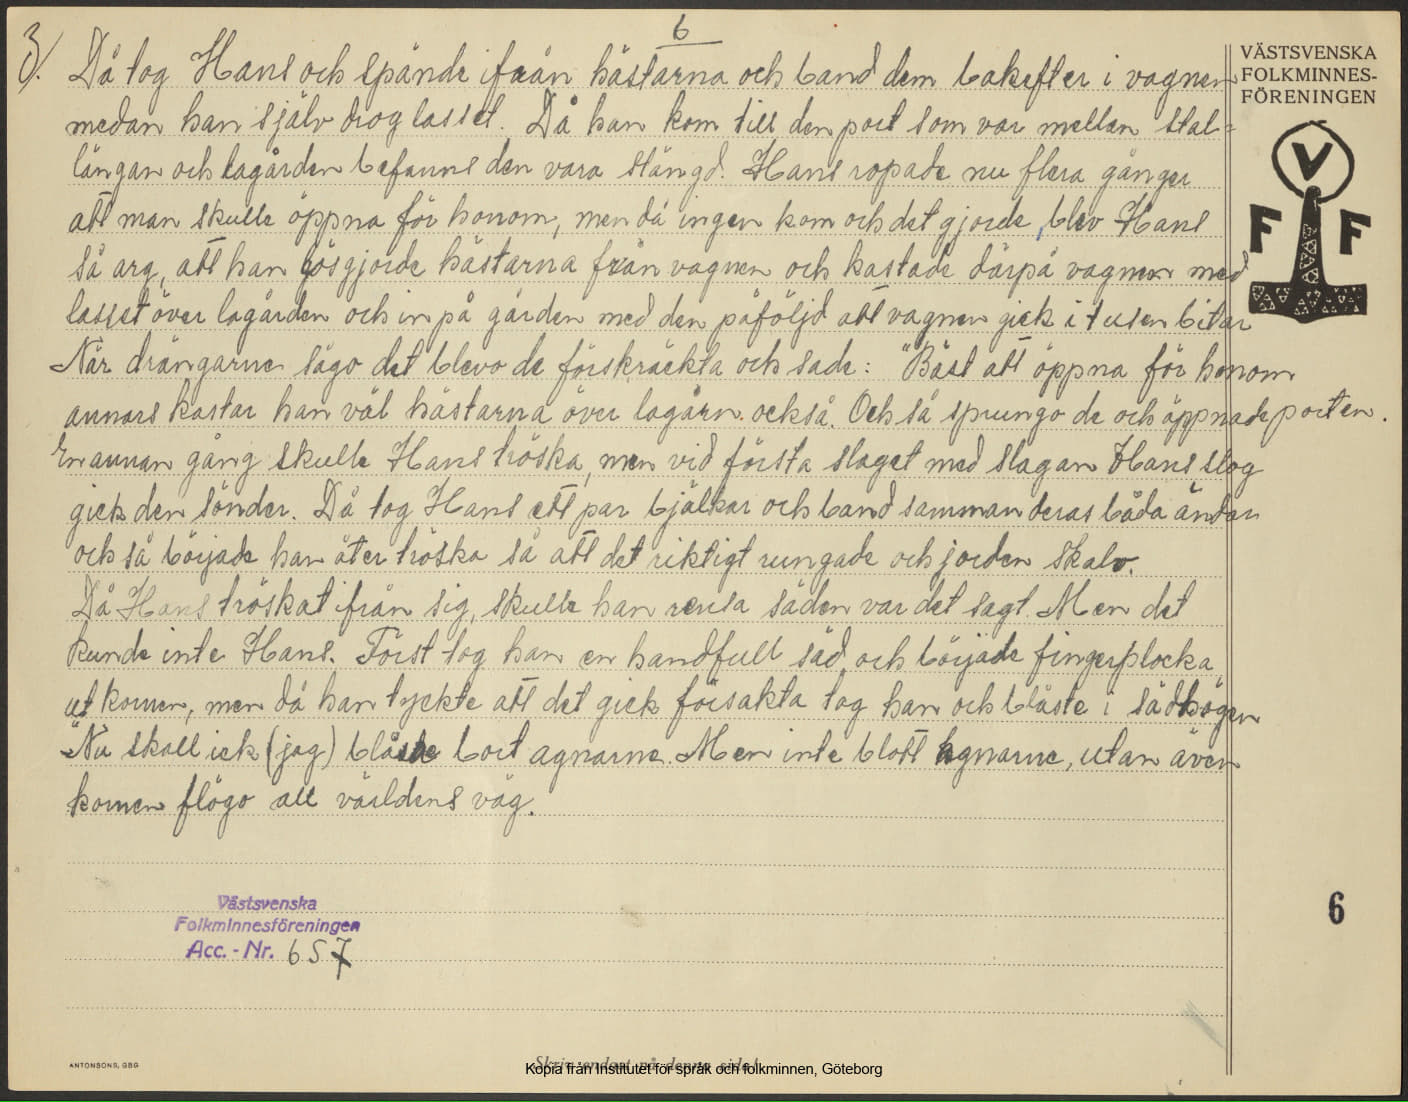 6
3/.
Då tog Hans och spände ifrån hästarna och band dem bakefter i vagnen
medan han själv drog lasset. Då han kom till den port som var mellan stal-
längan och lagården befanns den vara stängd. Hans ropade nu flera gånger
att man skulle öppna för honom, men då ingen kom och det gjorde, blev Hans
så arg, att han lösgjorde hästarna från vagnen och kastade därpå vagnen med
lasset över lagården och in på gården med den påföljd att vagnen gick i tusen bitar
När drängarne sågo det blevo de förskräckta och sade: "Bäst att öppna för honom
annars kastar han väl hästarna över lagårn också. Och så sprungo de och öppnade porten.
En annan gång skulle Hans tröska, men vid första slaget med slagan Hans slog
gick den sönder. Då tog Hans ett par bjälkar och band samman deras båda ändar
och så började han åter tröska så att det riktigt rungade och jorden skalv.
Då Hans tröskat ifrån sig, skulle han rensa säden var det sagt. Men det
kunde inte Hans. Först tog han en handfull säd och började fingerplocka
ut kornen, men då han tyckte att det gick försakta tog han och blåste i sädhögen
"Nu skall ick (jag) blåste bort agnarne. Men inte blott agnarne, utan även
kornen flögo all världens väg.
VÄSTSVENSKA
FOLKMINNES-
FÖRENINGEN
V
F F
6
Västsvenska
Folkminnesföreningen
Acc.-Nr. 657
ANTONSONS, GBG
Skriv endast på denna sida!
Kopia från Institutet för språk och folkminnen, Göteborg